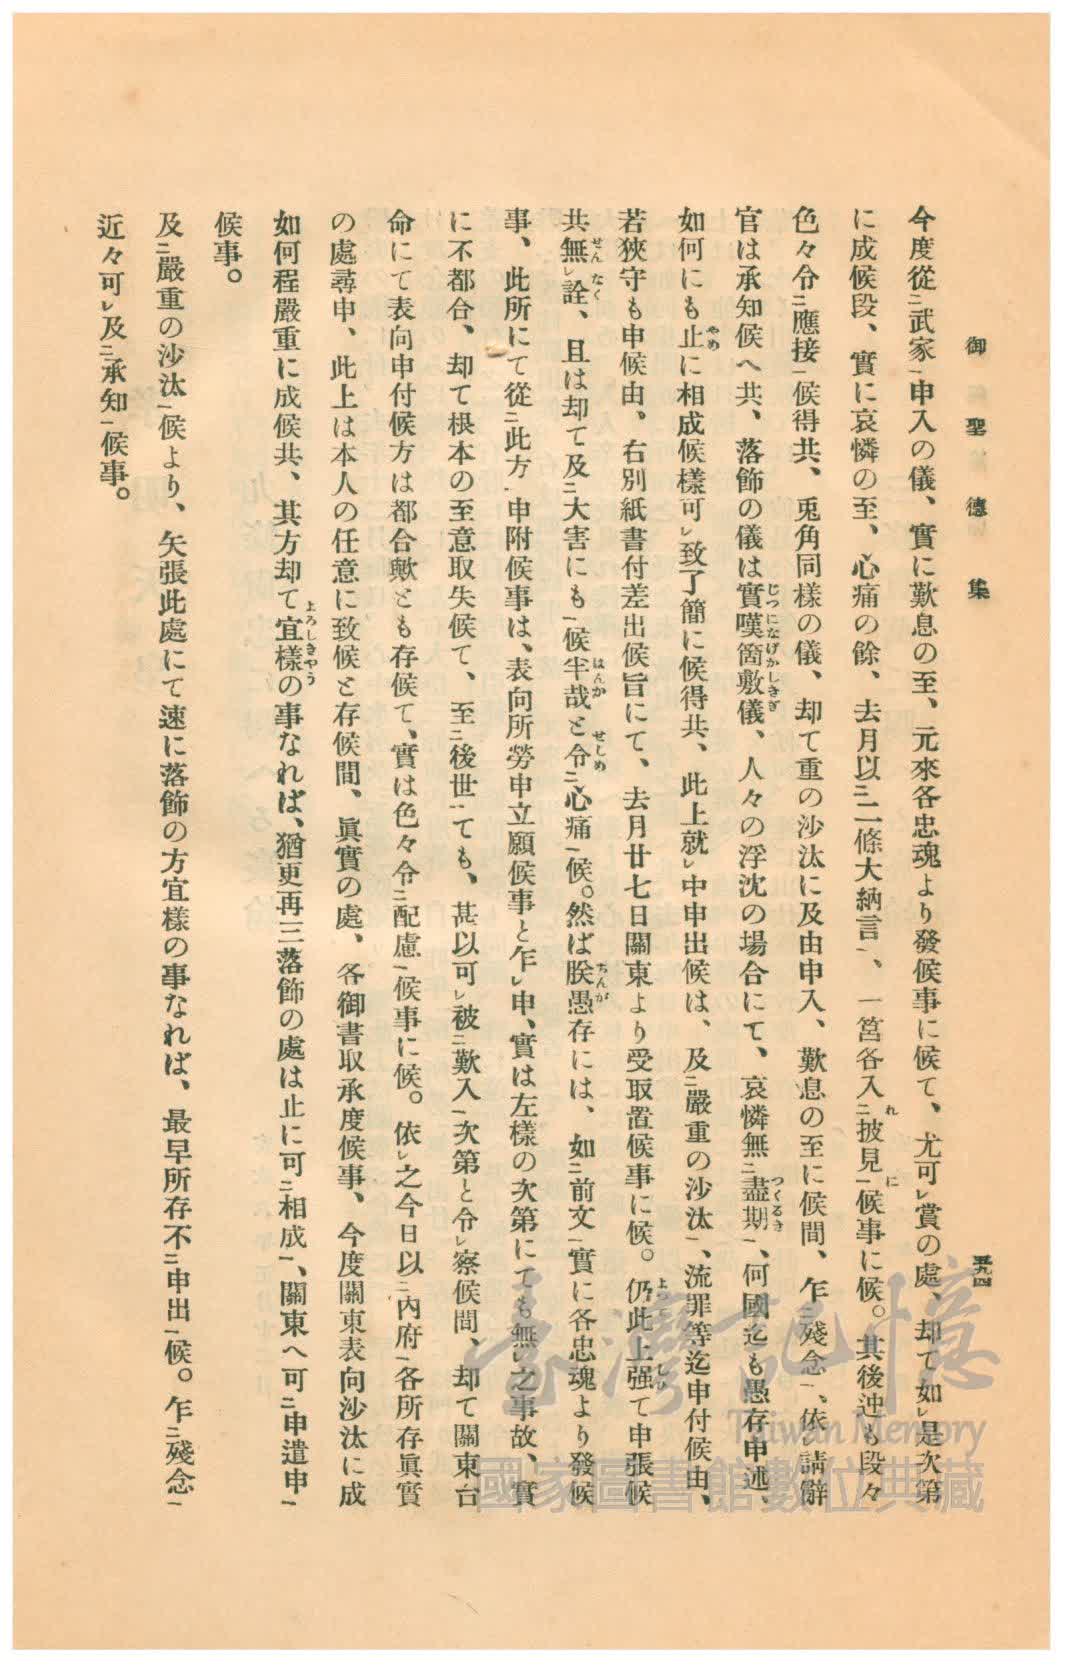 御聖德集
五九四
今度從㆓武家㆒申入の儀、實に歎息の至、元來各忠魂より發候事に候て、尤可㆑賞の處、却て如㆑是次第
に成候段、實に哀憐の至、心痛の餘、去月以㆓二條大納言㆒、一筥各入㆓披見㆒候事に候。其後迚も段々
れに
色々令㆓應接㆒候得共、兎角同樣の儀、却て重の沙汰に及由申入、歎息の至に候間、乍㆓殘念㆒、依㆑請辭
官は承知候へ共、落飾の儀は實嘆箇敷儀、人々の浮沈の場合にて、哀憐無㆓盡期㆒、何國迄も愚存申述、
じつになげかしきぎ
つくるき
如何にも止に相成候樣可㆑致了簡に候得共、此上就㆑中申出候は、及㆓嚴重の沙汰㆒、流罪等迄申付候由、
やめ
若狹守も申候由、右別紙書付差出候旨にて、去月廿七日關東より受取置候事に候。仍此上强て申張候
共無㆑詮、且は却て及㆓大害にも㆒候半哉と令㆓心痛㆒候。然ば朕愚存には、如㆓前文㆒實に各忠魂より發候
せんなく
はんか
せしめ
ちんが
事、此所にて從㆓此方㆒申附候事は、表向所勞申立願候事と乍㆑申、實は左樣の次第にても無㆑之事故、實
に不都合、却て根本の至意取失候て、至㆓後世㆒ても、甚以可㆑被㆓歎入㆒次第と令㆑察候間、却て關東台
命にて表向申付候方は都合歟とも存候て、實は色々令㆓配慮㆒候事に候。依㆑之今日以㆓內府㆒各所存眞實
の處尋申、此上は本人の任意に致候と存候間、眞實の處、各御書取承度候事、今度關東表向沙汰に成
如何程嚴重に成候共、其方却て宜樣の事なれば、猶更再三落飾の處は止に可㆓相成㆒、關東へ可㆓申遣申㆒
よろしきやう
候事。
及㆓嚴重の沙汰㆒候より、矢張此處にて速に落飾の方宜樣の事なれば、最早所存不㆓申出㆒候。乍㆓殘念㆒
近々可㆑及㆓承知㆒候事。
臺灣記憶
Taiwan Memory
國家圖書館數位典藏